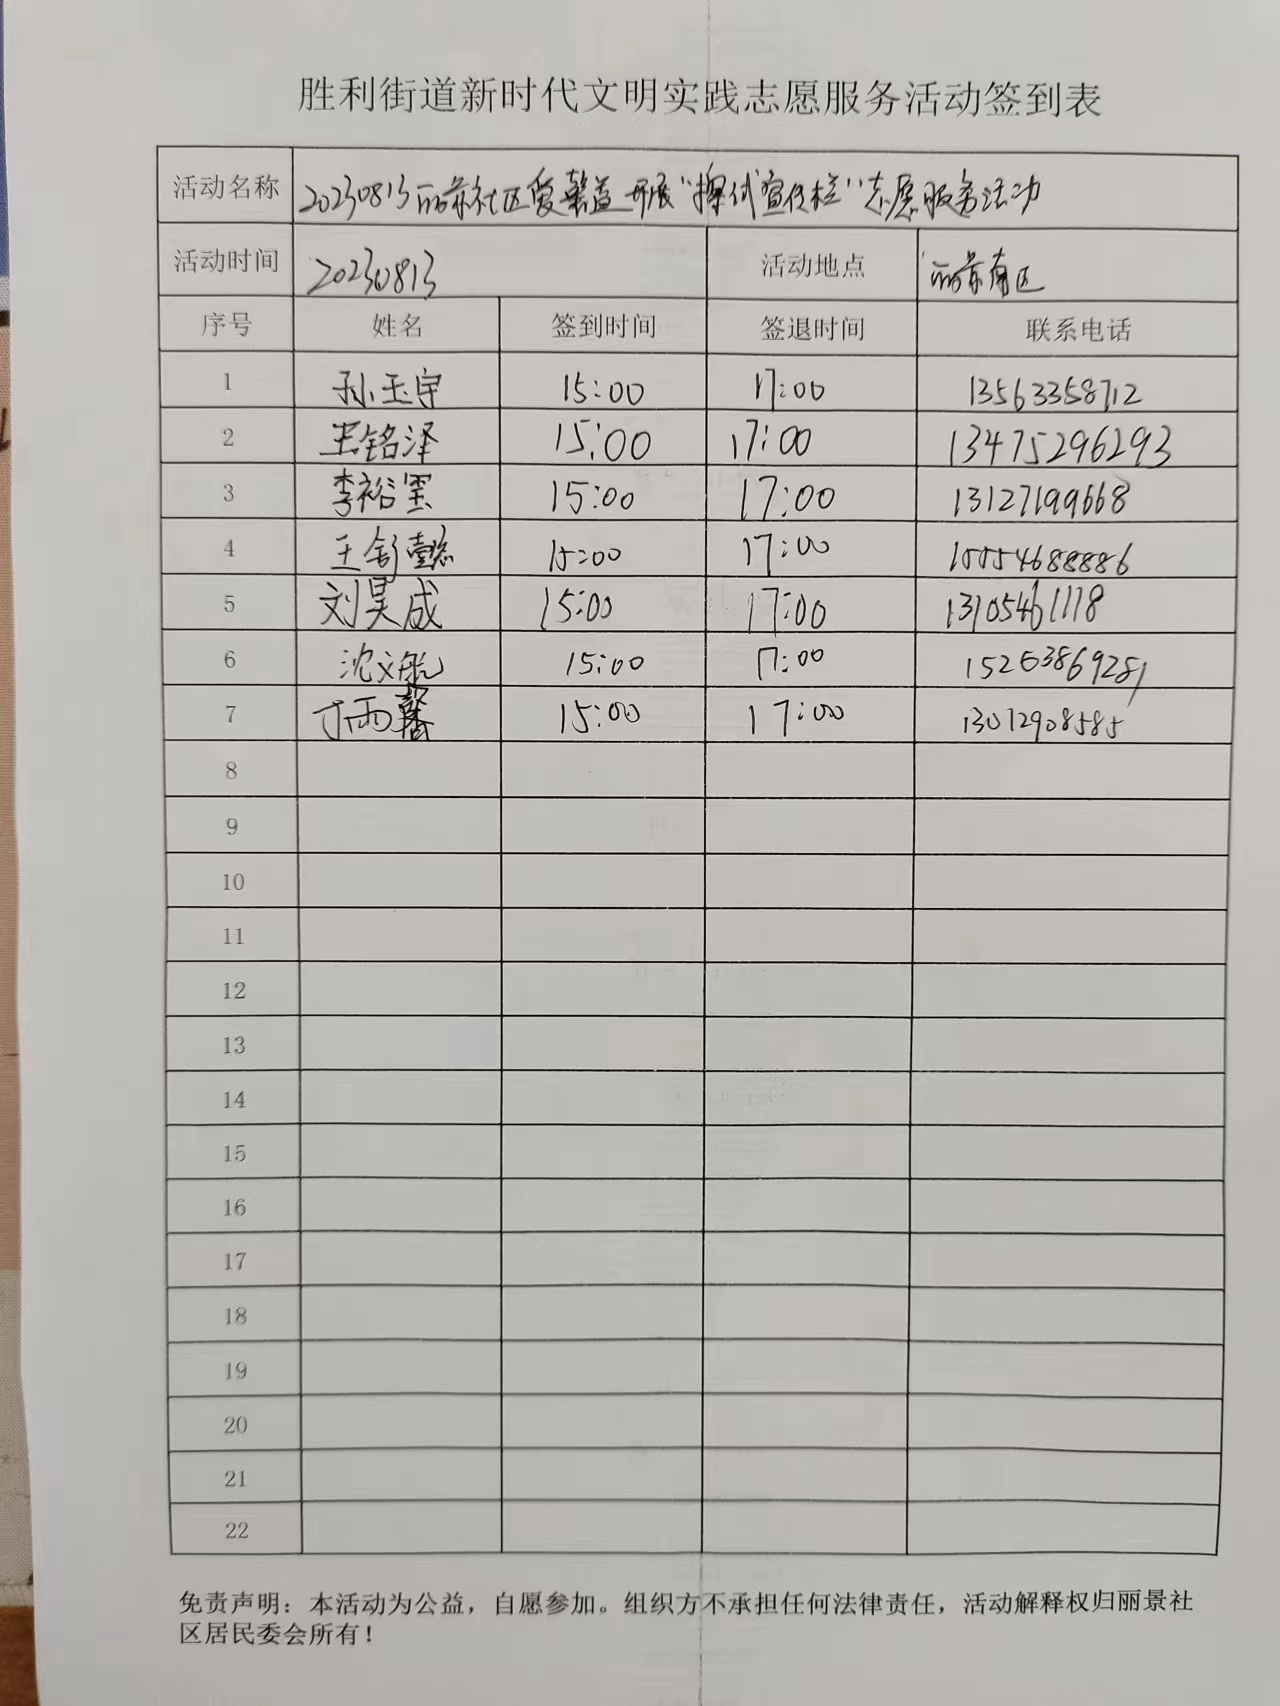 胜利街道新时代文明实践志愿服务活动签到表
活动名称 20230813丽景社区爱馨益开展“擦拭宣传栏”志愿服务活动
活动时间 20230813 活动地点 丽景南区
序号 姓名 签到时间 签退时间 联系电话
1 孙玉宇 15:00 17:00 13563358712
2 王铭泽 15:00 17:00 13475296293
3 李裕 15:00 17:00 13127199668
4 王舒懿 15:00 17:00 15054688886
5 刘昊成 15:00 17:00 13105461118
6 沈文航 15:00 17:00 15263869281
7 丁雨馨 15:00 17:00 13012908585
8
9
10
11
12
13
14
15
16
17
18
19
20
21
22
免责声明：本活动为公益，自愿参加。组织方不承担任何法律责任，活动解释权归丽景社
区居民委会所有！